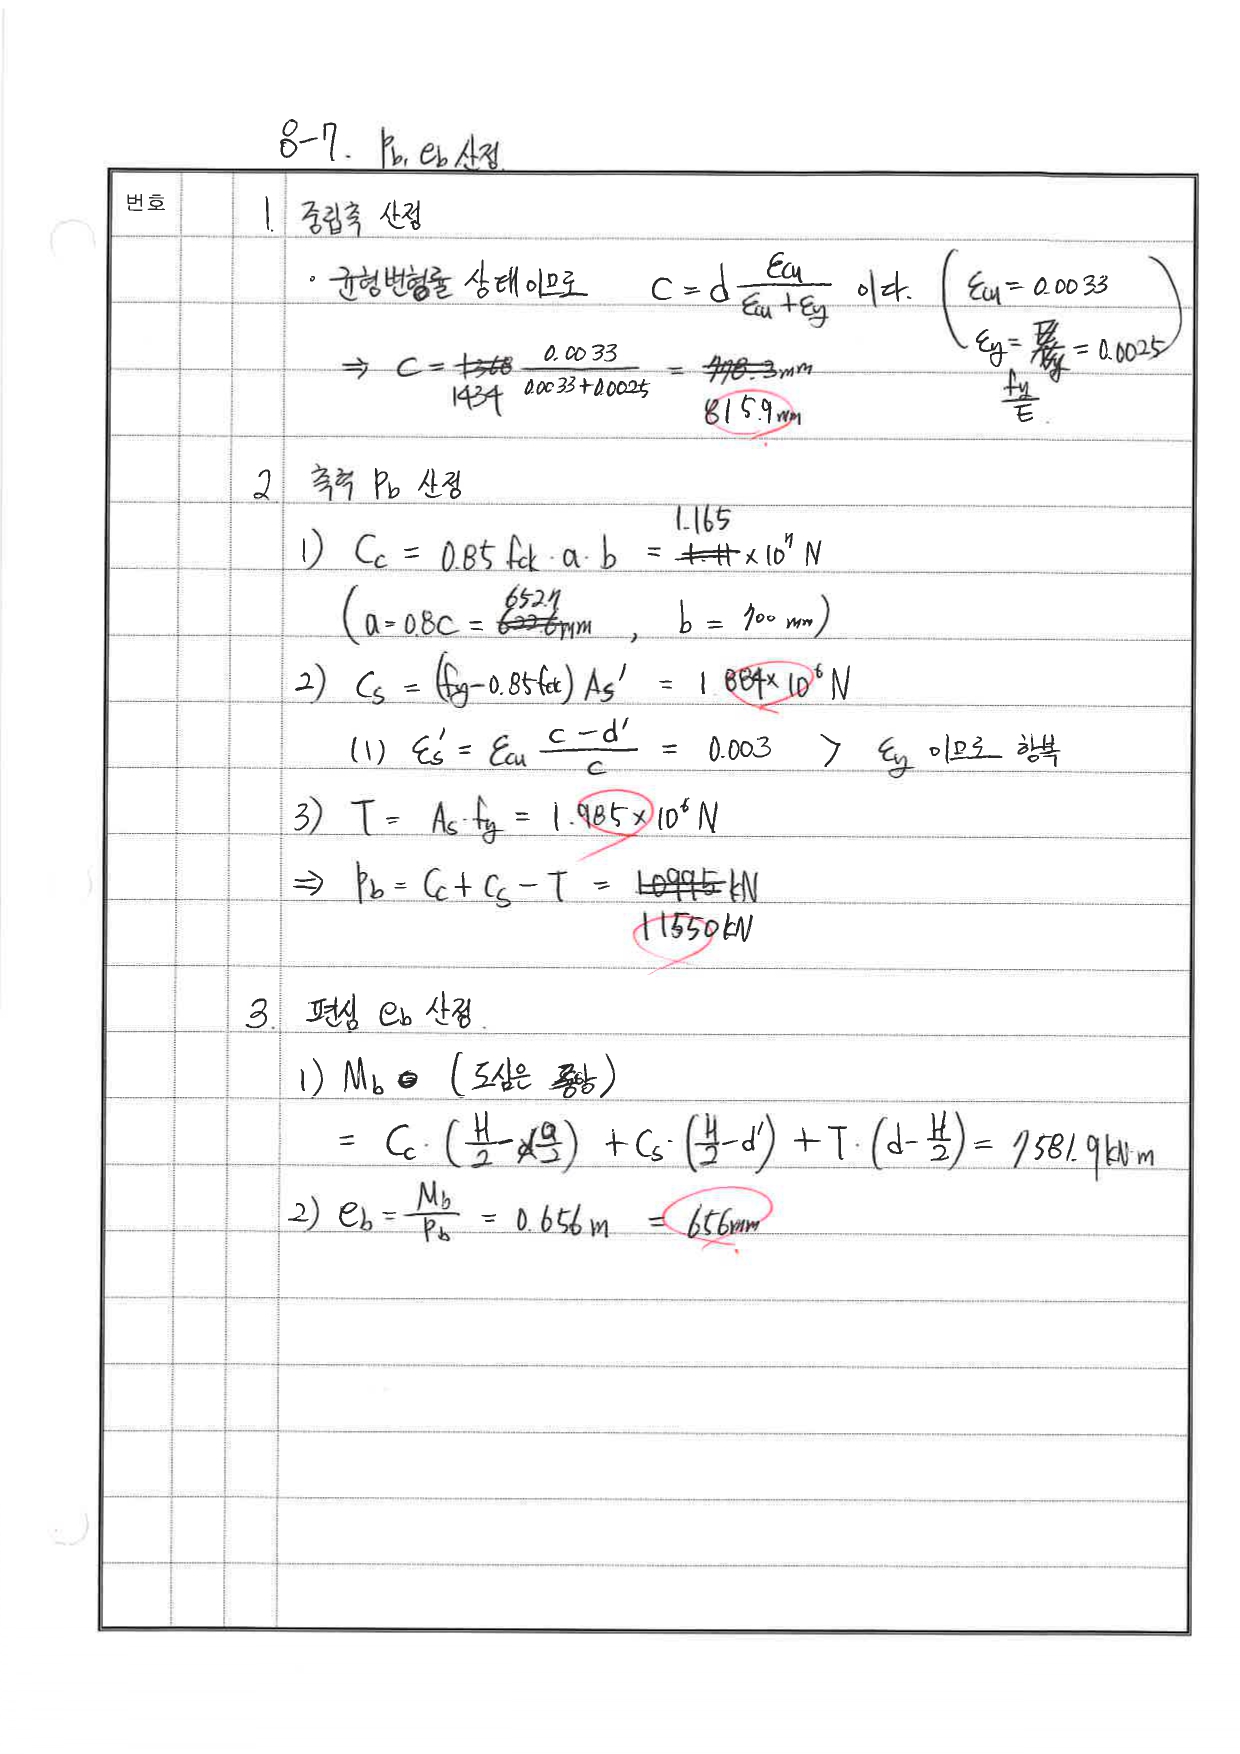 8-7. Pb, eb 산정
번호
1. 중립축 산정
· 균형변형률 상태이므로 C = d εcu/(εcu + εy) 이다. (εcu = 0.0033
εy = fy/E = 0.0025)
⇒ C = 1434 0.0033/(0.0033+0.0025) = 815.9mm
2. 축력 Pb 산정
1) Cc = 0.85 fck · a · b = 1.165 × 10⁷ N
(a = 0.8C = 652.7mm , b = 700 mm)
2) Cs = (fy - 0.85fck) As' = 1.884 × 10⁶ N
(1) εs' = εcu (c - d')/c = 0.003 > εy 이므로 항복
3) T = As · fy = 1.985 × 10⁶ N
⇒ Pb = Cc + Cs - T = 11550 kN
3. 편심 eb 산정.
1) Mb (도심은 중앙)
= Cc · (H/2 - a/2) + Cs · (H/2 - d') + T · (d - H/2) = 7581.9 kN·m
2) eb = Mb/Pb = 0.656 m = 656mm